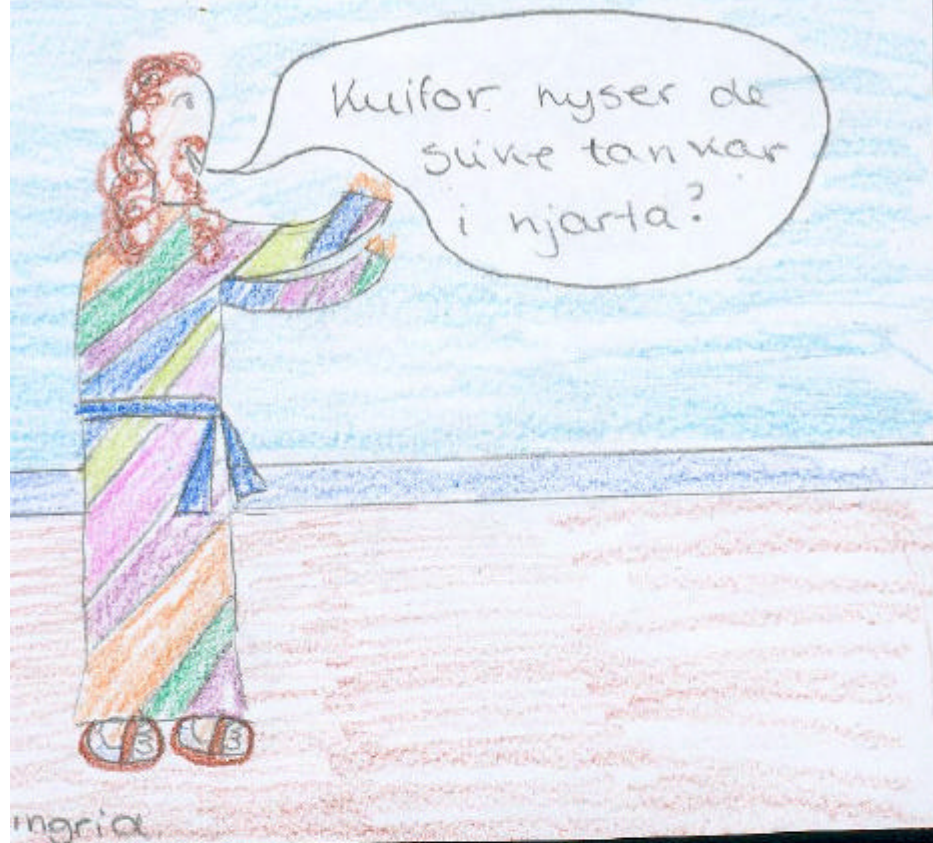 Kvifor hyser de
slike tankar
i hjarta?
ingrid